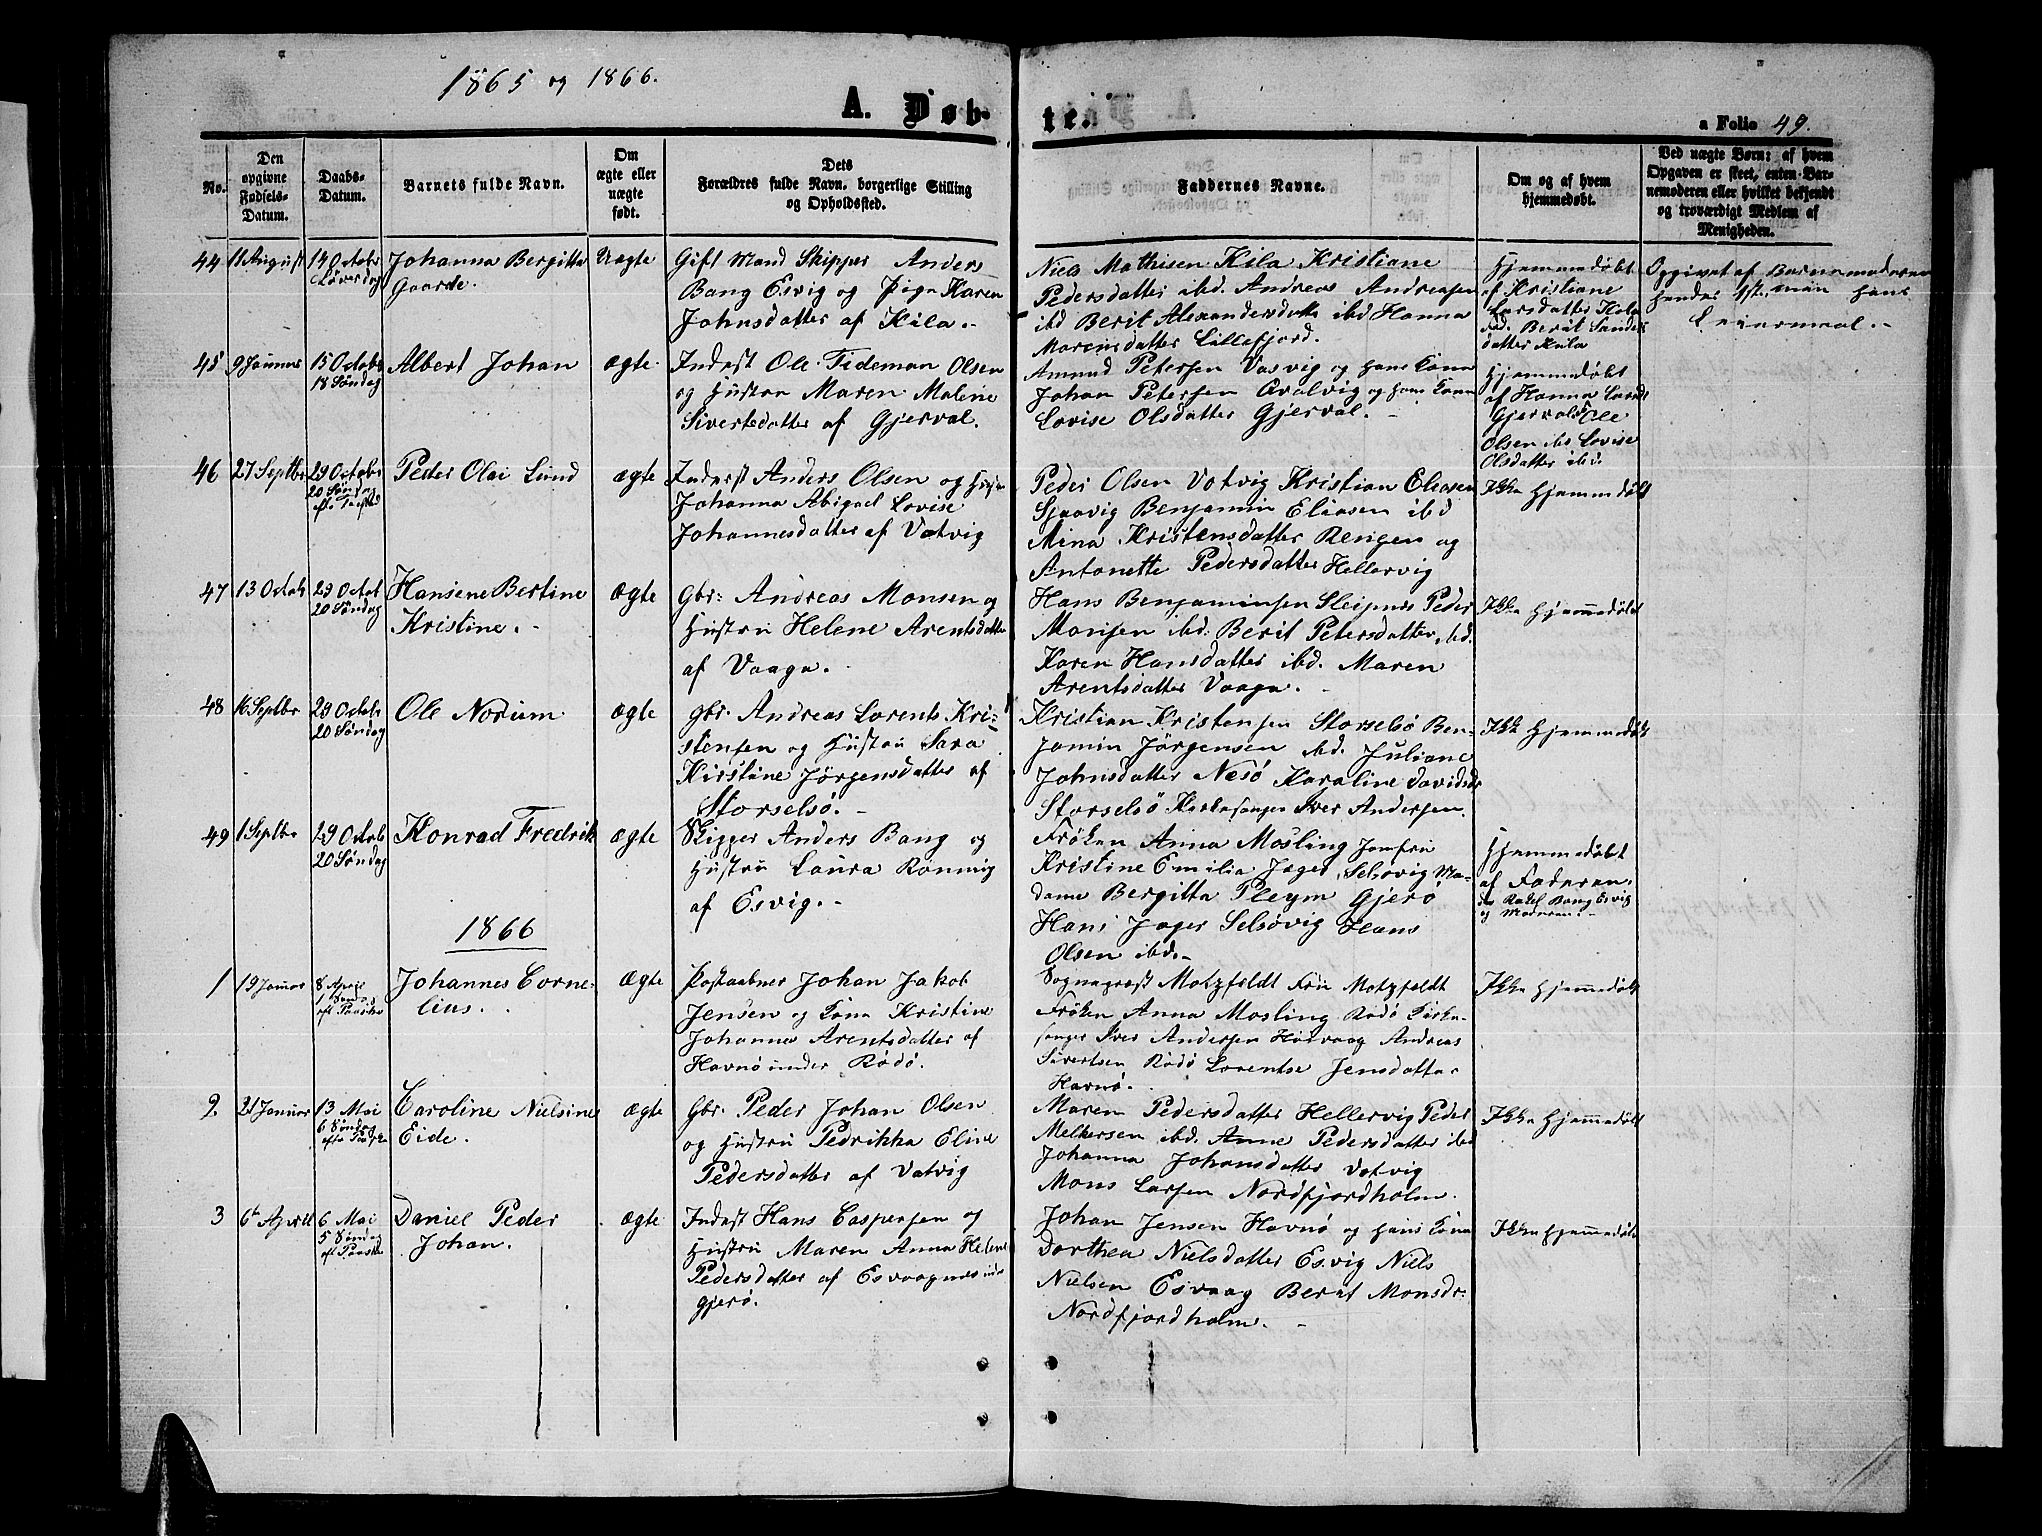 1865 og 1866.
A. Døb-
te.
a Folio 49.
No.
Den
opgivne
Fødsels-
Datum.
Daabs-
Datum.
Barnets fulde Navn.
Om
ægte eller
uægte
født.
Dets
Forældres fulde Navn, borgerlige Stilling
og Opholdssted.
Faddernes Navne.
Om og af hvem
hjemmedøbt.
Ved uægte Børn: af hvem
Opgaven er skeet, enten Bar-
nemoderen eller hvilket bekjendt
og troværdigt Medlem af
Menigheden.
44 11 August
Løverdag
Johanna Bergitte
Gaarde.
Uægte
Gift Mand Skipper Anders
Bang Esvig og Pige Karen
Johnsdatter af Kila.
Niels Mathisen Kila Kristiane
Pedersdatter ibd. Andreas Andreasen
ibd Berit Alexandersdatter ibd Hanna
Morensdatter Lillefjord.
Hjemmedøbt
af Kristiane
Larsdatter Kila
datter Kila
Opgivet af Barnemoderen
hendes 1ste, men hans
Leiermaal.
45 9 Januar 15 Octobr
18 Søndag
Albert Johan
Ægte.
Inderst Ole Tideman Olsen
og Hustru Maren Malene
Sivertsdatter af Gjerval.
Amund Petersen Vasvig og hans Kona
Johan Petersen Qvalvig og hans Kona
Lovise Olsdatter Gjerval.
Hjemmedøbt
af Hanna
Gjerval Ole
Olsen ibd Lovise
Olsdatter ibd.
46 27 Septbr 29 Octobr
20 Søndag
Peder Olai Lund
Ægte
Inderst Anders Olsen og
Johanna Abigael Lovise
Johannesdatter af Vatvig
Peder Olsen Vatvig Kristian Eliasen
Sjaavig Benjamin Eliasen ibd
Mina Kristensdatter Rengen og
Antonette Pedersdatter Hellervig
Ikke Hjemmedøbt
47 13 Octob 29 Octob
20 Søndag
Hansene Bertine
Kristine.
Ægte
Gbr: Andreas Monsen og
Hustru Helene Arentsdatter
af Vaaga.
Hans Benjaminsen Sleipnes Peder
Monsen ibd. Berit Petersdatter ibd.
Karen Hansdatter ibd. Maren
Arentsdatter Vaaga.
Ikke Hjemmedøbt
48 16 Septbr 29 Octobr
20 Søndag
Ole Norum
Ægte
Gbr. Andreas Lorents Kri-
stensen og Hustru Sara
Kirstine Jörgensdatter af
Storselsö.
Kristian Kristensen Storselsö Ben-
jamin Jörgensen ibd. Juliane
Johnsdatter Nesö Karoline Davidsdr
Storselsö Kirkesanger Iver Andersen.
Ikke Hjemmedøbt
49 1 Septbr 29 Octob
20 Søndag
Konrad Fredrik
Ægte
Skipper Anders Bang og
Hustru Laura Rönning
af Esvig.
Fröken Anna Mosling Jomfru
Kristine Emilia Jager, Selsövig Ma-
dame Bergitta Pleym Gjerö
Hans Jager Selsövig Hans
Olsen ibd.
Hjemmedöbt
af Faderen.
og Moderen.
1866
1 19 Januar 8 April
Johannes Corne-
lius.
Ægte
Postaabner Johan Jakob
Jensen og Kona Kristine
Johanna Arentsdatter af
Havnö under Rödö.
Sognepræst Motzfeldt Fru Motzfeldt
Fröken Anna Mosling Rödö Kirke-
sanger Iver Andersen Andreas
Sivertsen Rödö Lorentse Jensdatter
Havnö.
Ikke Hjemmedøbt
2. 21 Januar 13 Mai
6 Søndag
Caroline Nielsine
Eide.
Ægte
Gbr. Peder Johan Olsen
og Hustru Pedrikka Eline
Pedersdatter af Vatvig
Maren Pedersdatter Hellervig Peder
Melkersen ibd. Anne Pedersdatter ibd
Johanna Johansdatter Vatvig
Mons Larsen Nordfjordholm.
Ikke Hjemmedøbt
3 6te April 6 Mai
5 Søndag
Daniel Peder
Johan.
Ægte
Inderst Hans Caspersen og
Hustru Maren Anna Helene
Pedersdatter af Esvaagnes
Gjerö.
Johan Jensen Havnö og hans Kona
Dorthea Nielsdatter Esvig Niels
Nielsen Esvaag Berit Monsdr:
Nordfjordholm.
Ikke Hjemmedøbt